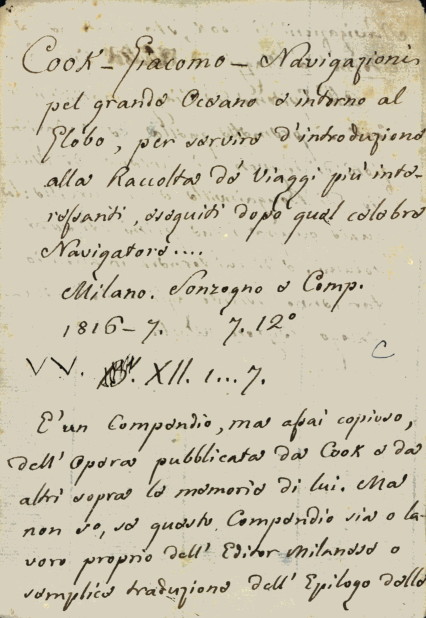 Cook – Giacomo – Navigazioni
pel grande Oceano e intorno al
Globo, per servire d'introduzione
alla Raccolta de' Viaggi più inte-
ressanti, eseguiti dopo quel celebre
Navigatore....
Milano. Sonzogno e Comp.
1816–7. 7. 12°
C
VV. XII. 1...7.
E' un Compendio, ma assai copioso,
dell'Opera pubblicata da Cook e da
altri sopra le memorie di lui. Ma
non so, se questo Compendio sia o la-
voro proprio dell'Editor Milanese o
semplice traduzione dell'Epilogo delle